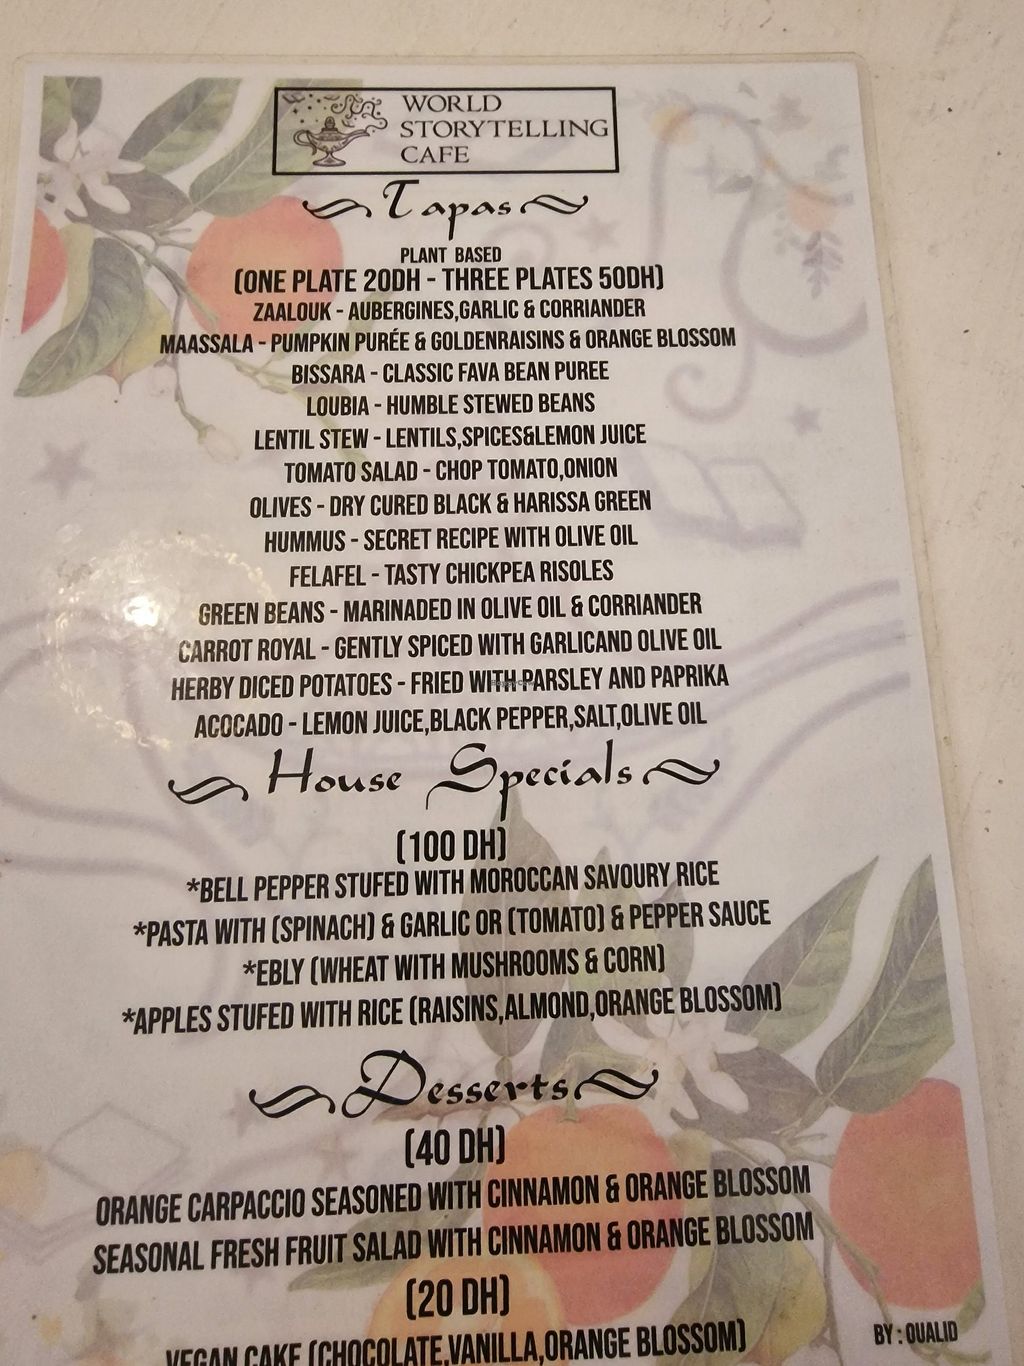 WORLD
STORYTELLING
CAFE
Tapas
PLANT BASED
(ONE PLATE 20DH - THREE PLATES 50DH)
ZAALOUK - AUBERGINES,GARLIC & CORRIANDER
MAASSALA - PUMPKIN PURÉE & GOLDENRAISINS & ORANGE BLOSSOM
BISSARA - CLASSIC FAVA BEAN PUREE
LOUBIA - HUMBLE STEWED BEANS
LENTIL STEW - LENTILS,SPICES&LEMON JUICE
TOMATO SALAD - CHOP TOMATO,ONION
OLIVES - DRY CURED BLACK & HARISSA GREEN
HUMMUS - SECRET RECIPE WITH OLIVE OIL
FELAFEL - TASTY CHICKPEA RISOLES
GREEN BEANS - MARINADED IN OLIVE OIL & CORRIANDER
CARROT ROYAL - GENTLY SPICED WITH GARLICAND OLIVE OIL
HERBY DICED POTATOES - FRIED WITH PARSLEY AND PAPRIKA
ACOCADO - LEMON JUICE,BLACK PEPPER,SALT,OLIVE OIL
House Specials
(100 DH)
*BELL PEPPER STUFED WITH MOROCCAN SAVOURY RICE
*PASTA WITH (SPINACH) & GARLIC OR (TOMATO) & PEPPER SAUCE
*EBLY (WHEAT WITH MUSHROOMS & CORN)
*APPLES STUFED WITH RICE (RAISINS,ALMOND,ORANGE BLOSSOM)
Desserts
(40 DH)
ORANGE CARPACCIO SEASONED WITH CINNAMON & ORANGE BLOSSOM
SEASONAL FRESH FRUIT SALAD WITH CINNAMON & ORANGE BLOSSOM
(20 DH)
VEGAN CAKE (CHOCOLATE,VANILLA,ORANGE BLOSSOM)
BY : OUALID